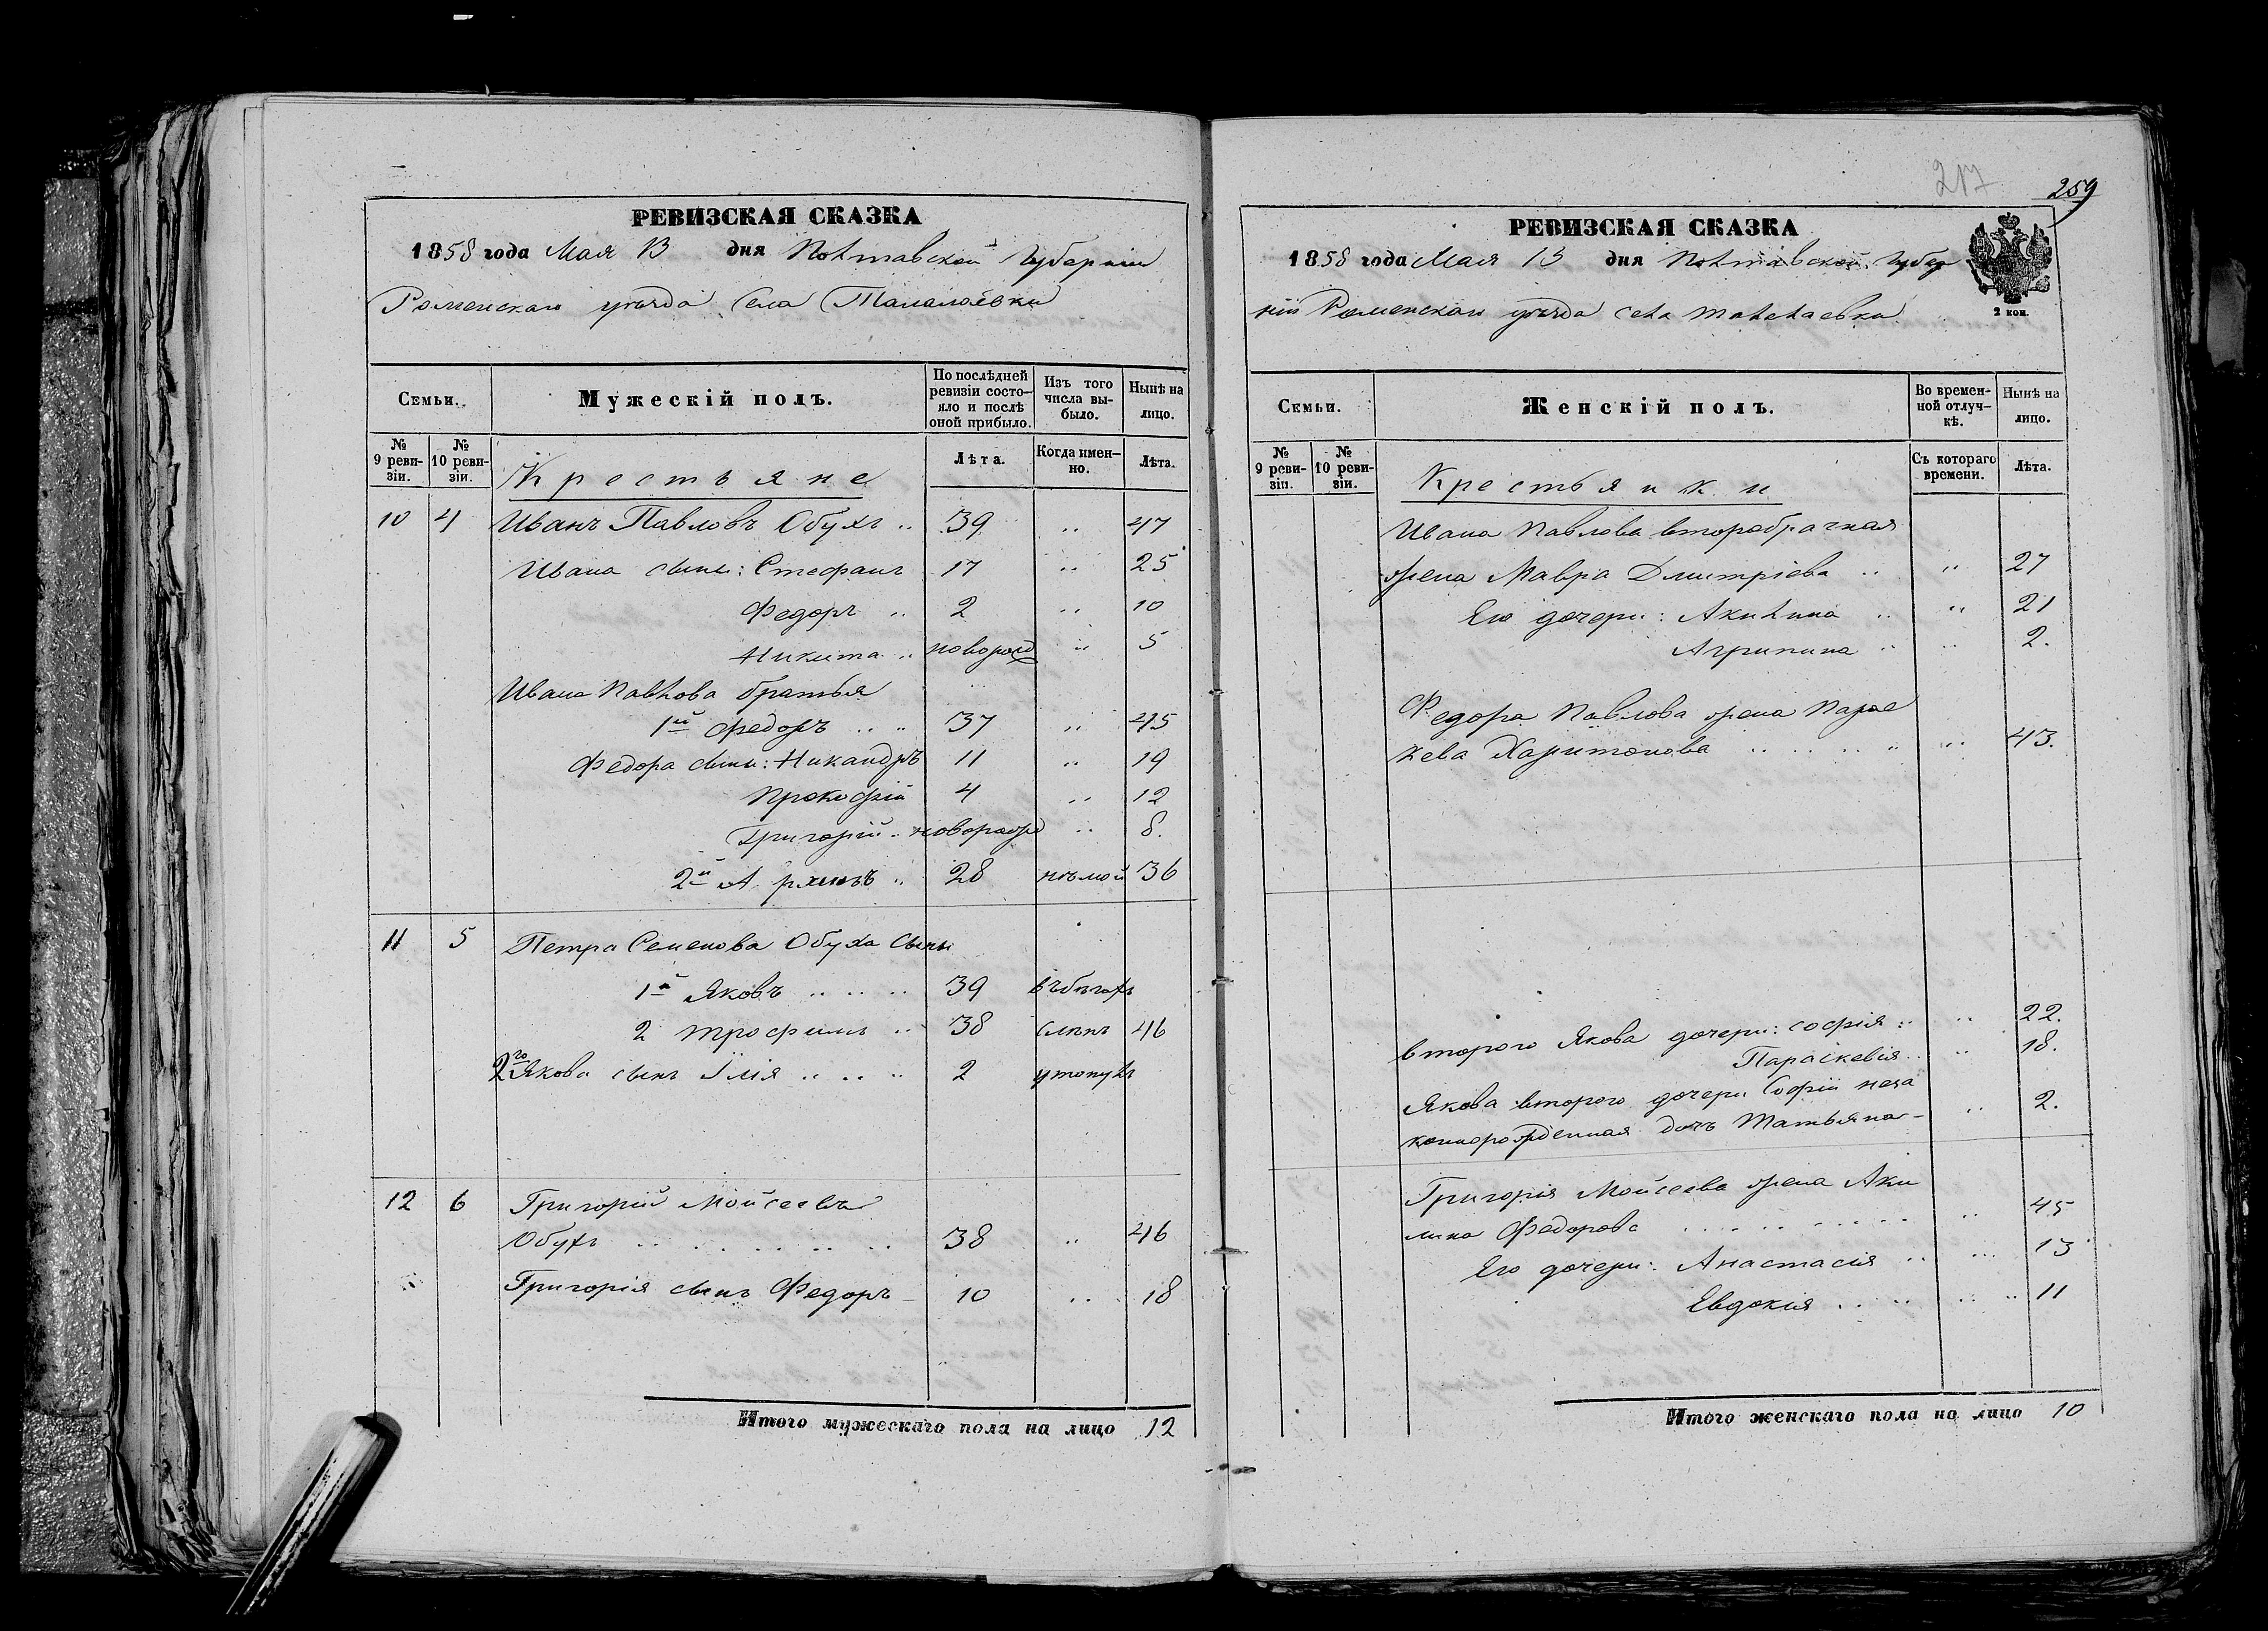 РЕВИЗСКАЯ СКАЗКА
1858 года Мая 13 дня Полтавской Губернии
Роменскаго уѣзда Села Талалаевки
Семьи. Мужескій полъ. По послѣдней ревизіи состояло и послѣ оной прибыло. Изъ того числа выбыло. Нынѣ на лицо.
№ 9 ревизіи. № 10 ревизіи. Крестьяне Лѣта. Когда именно. Лѣта.
10 4 Иванъ Павловъ Обухъ .. 39 .. 47
Ивана сыны: Стефанъ 17 .. 25
Федоръ .. 2 .. 10
Никита .. новорожд .. 5
Ивана Павлова братья
1й Федоръ .. .. 37 .. 45
Федора сыны: Никандръ 11 .. 19
Прокофій 4 .. 12
Григорій .. новорожд .. 8.
2й 28 нѣмой 36
11 5 Петра Семенова Обуха сыны
1й Яковъ .. .. .. 39 въ бѣгахъ
2 Трофимъ .. 38 слѣпъ 46
2го Якова сынъ Ілія .. .. .. 2 утонулъ
12 6 Григорій Мойсеевъ
Обухъ .. .. .. .. .. 38 .. 46
Григорія сынъ Федоръ 10 .. 18
Итого мужескаго пола на лицо 12
217
259
РЕВИЗСКАЯ СКАЗКА
1858 года Мая 13 дня Полтавской Губер
ніи Роменскаго уѣзда села Талалаевки
2 коп.
Семьи. Женскій полъ. Во временной отлучкѣ. Нынѣ на лицо.
№ 9 ревизіи. № 10 ревизіи. Крестьянки Съ котораго времени. Лѣта.
Ивана Павлова второбрачная
жена Мавра Дмитріева .. .. 27
Его дочери: Акилина .. .. 21
Агрипина .. .. 2.
Федора Павлова жена Парас
кева Харитонова .. .. .. .. 43.
второго Якова дочери: Софія .. .. 22.
Параскевія .. .. 18.
Якова второго дочери Софіи неза
коннорожденная дочь Татьяна - .. 2.
Григорія Мойсеева жена Аки
лина Федорова .. .. .. .. .. 45
Его дочери: Анастасія .. .. 13
Евдокия .. .. .. .. 11
Итого женскаго пола на лицо 10